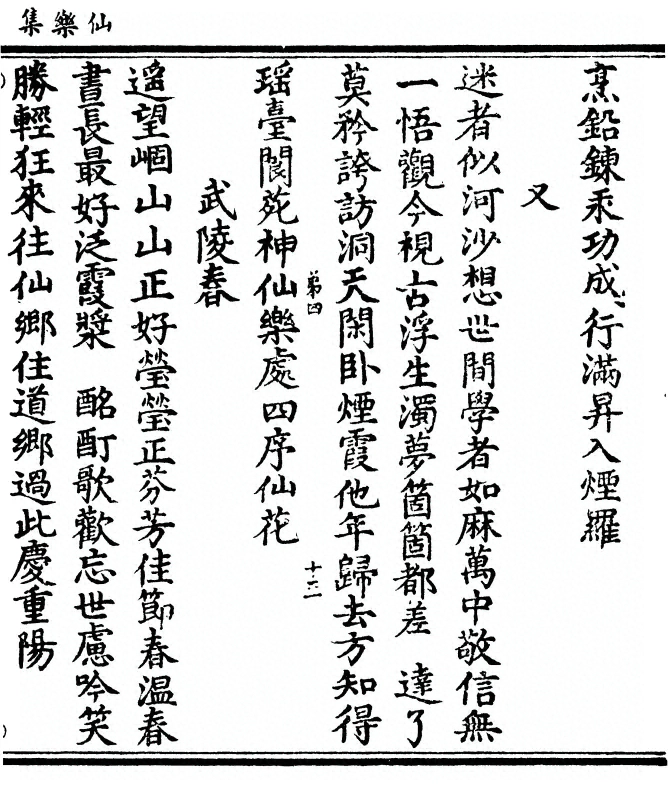 仙樂集
烹鉛鍊汞功成行滿昇入煙羅
又
迷者似河沙想世間學者如麻萬中敬信無
一悟觀今視古浮生濁夢箇箇都差 達了
莫矜誇訪洞天閑卧煙霞他年歸去方知得
第四
十三
瑶臺閬苑神仙樂處四序仙花
武陵春
遥望崓山山正好瑩瑩正芬芳佳節春温春
晝長最好泛霞漿 酩酊歌歡忘世慮吟笑
勝輕狂來往仙鄉住道鄉過此慶重陽